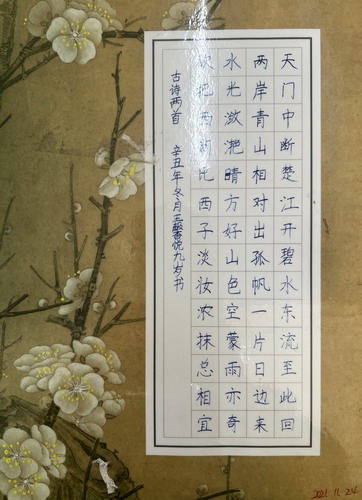 天门中断楚江开碧水东流至此回
两岸青山相对出孤帆一片日边来
水光潋滟晴方好山色空蒙雨亦奇
欲把西湖比西子淡妆浓抹总相宜
古诗两首 辛丑年冬月王馨悦九岁书
2021.11.24